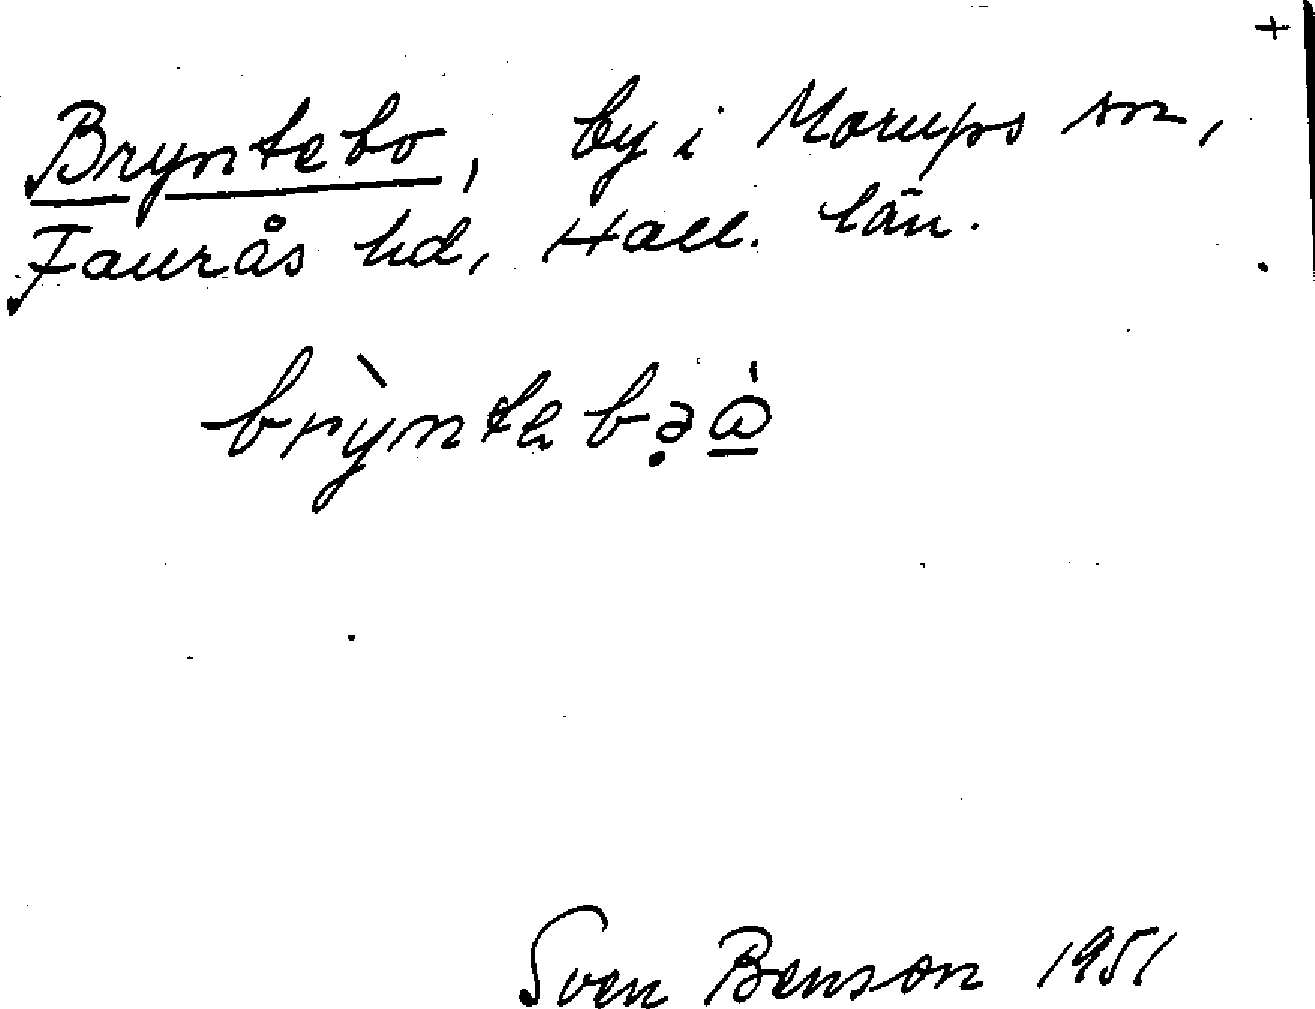 +
Bryntebo, by i Morups sn,
Faurås hd, Hall. län.
Sven Benson 1951